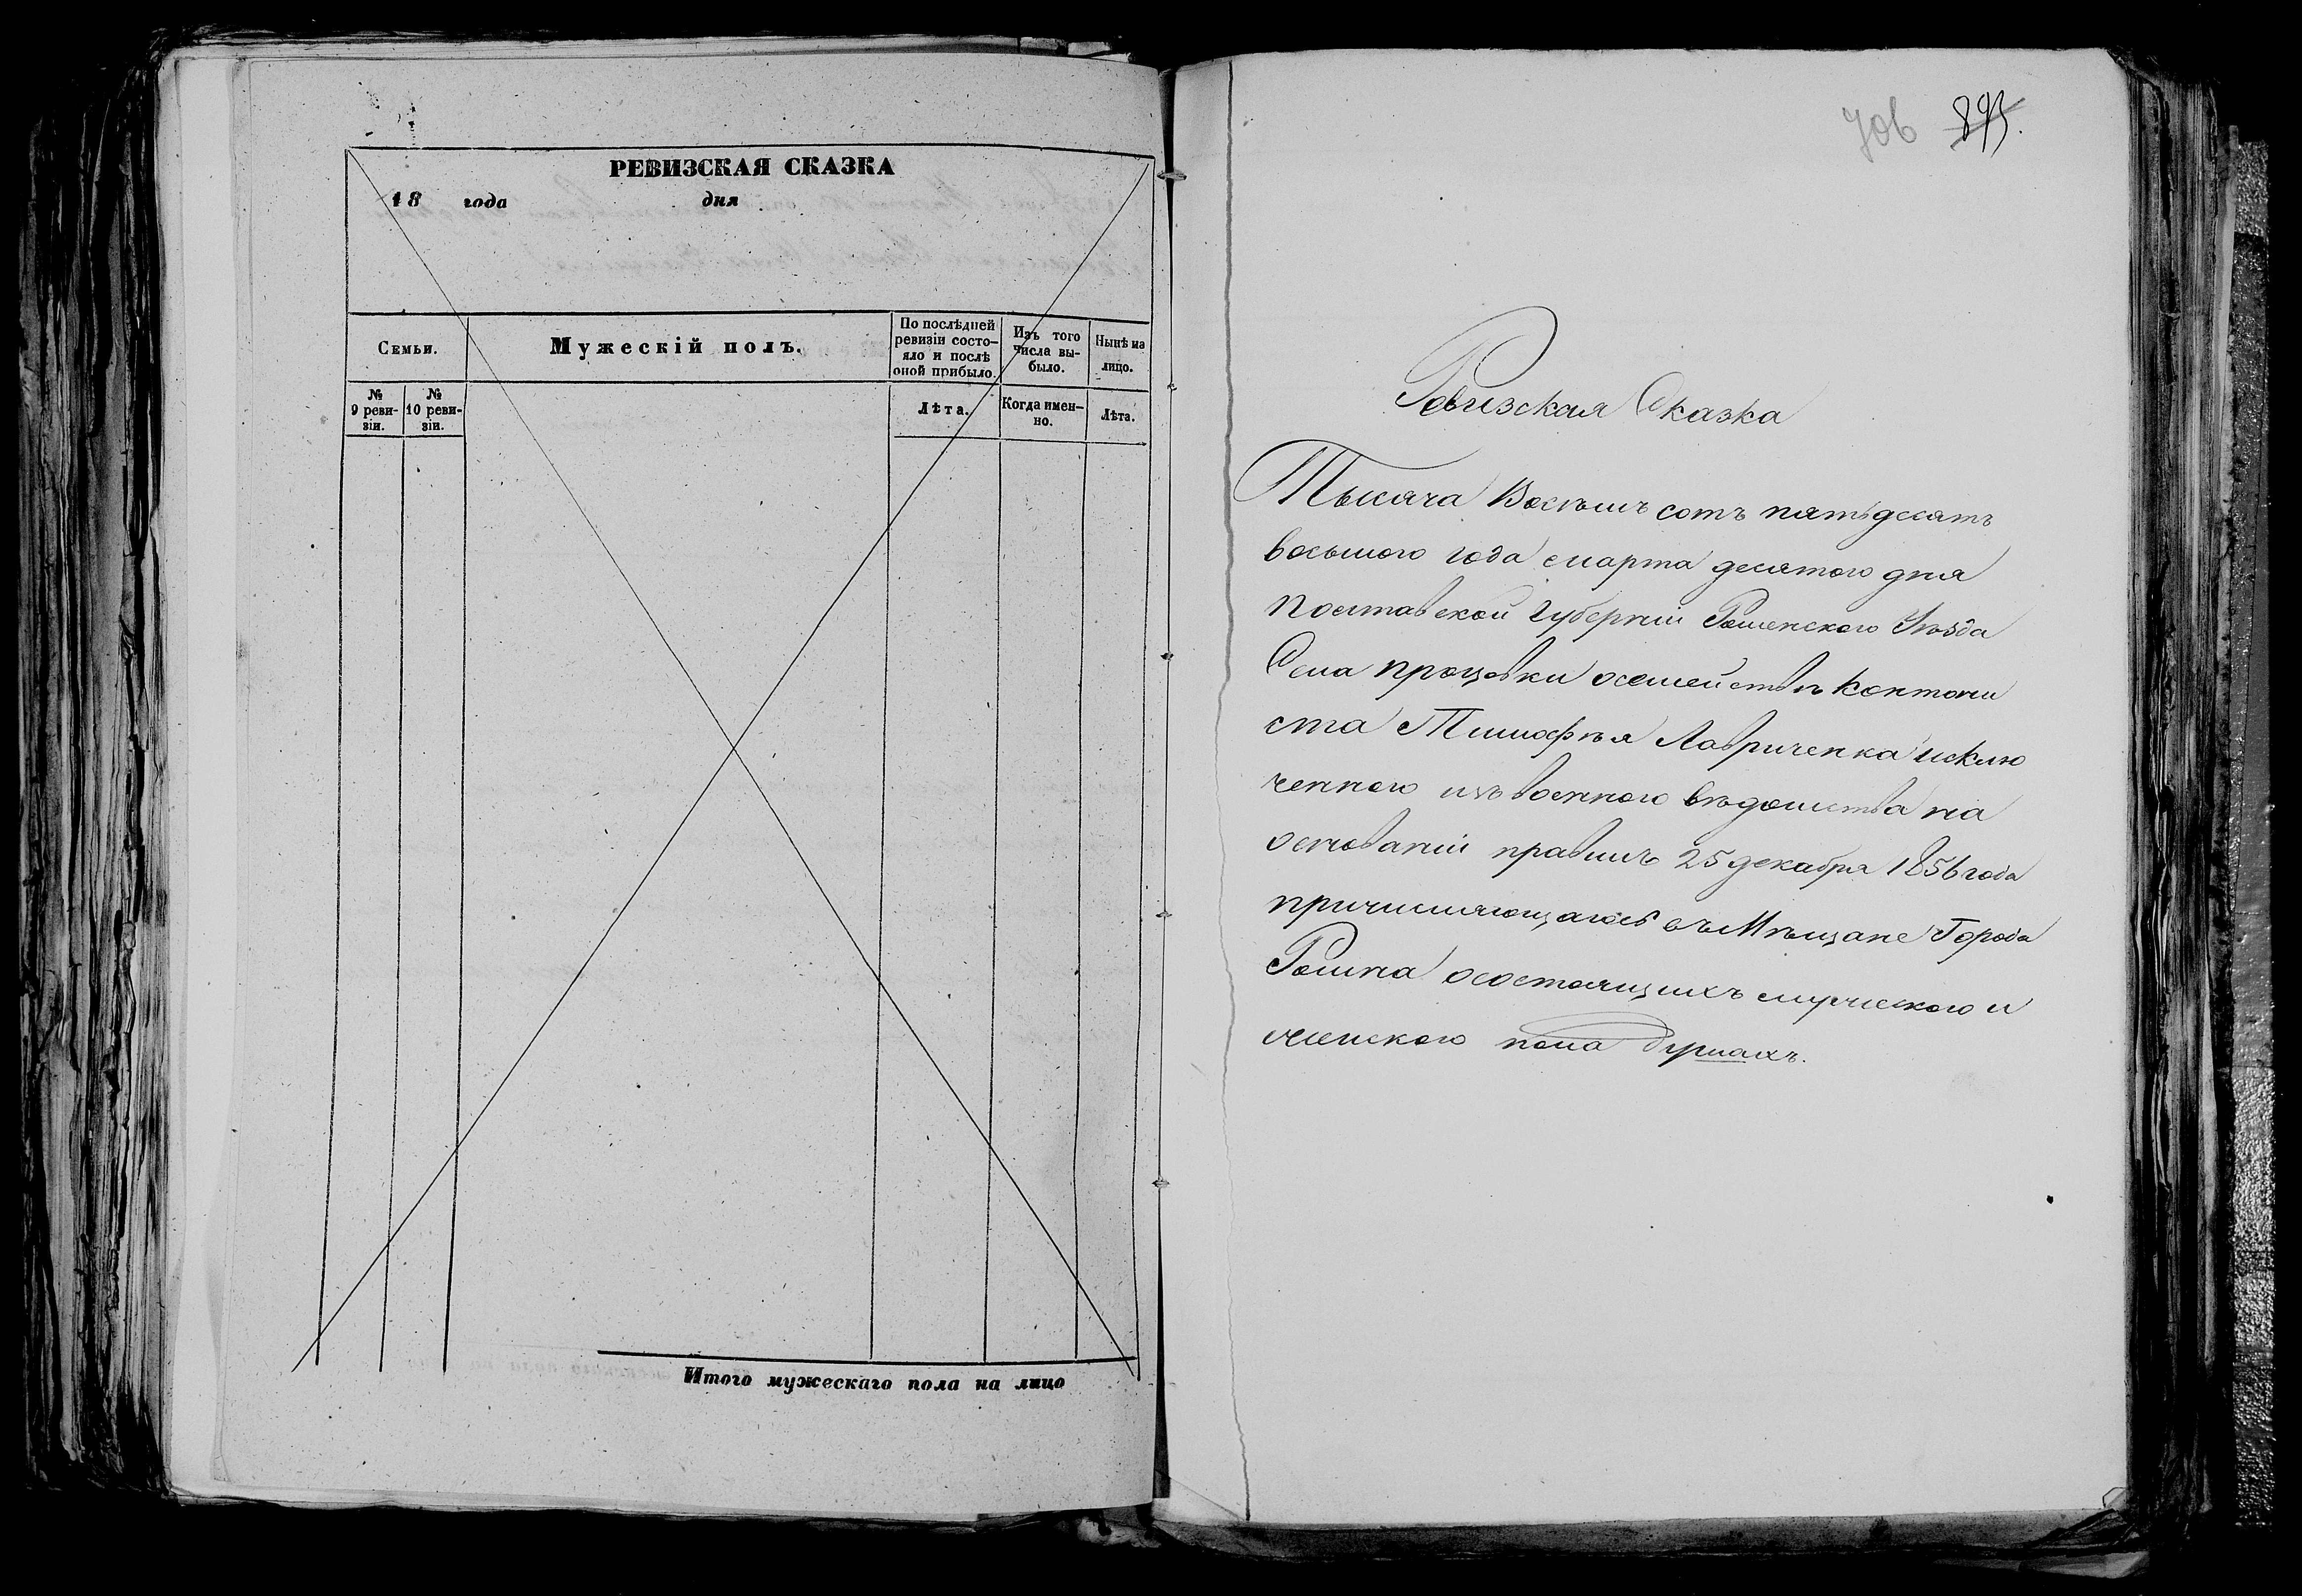 РЕВИЗСКАЯ СКАЗКА
18 года дня
Семьи.
Мужескій полъ.
По послѣдней
ревизіи состо-
яло и послѣ
оной прибыло.
Изъ того
числа вы-
было.
Нынѣ на
лицо.
№
9 реви-
зіи.
№
10 реви-
зіи.
Лѣта.
Когда имен-
но.
Лѣта.
Итого мужескаго пола на лицо
706
Ревизская Сказка
Тысяча Восемь сотъ пятьдесятъ
восьмого года марта десятого дня
Полтавской Губерніи Роменского Уѣзда
Села процовки осемействѣ Контони
ста Тимофѣя Лавриченка исклю
ченного изъ военного вѣдомства на
основаніи правилъ 25 декабря 1856 года
причисляющагося въ Мѣщане Города
Ромна осостоящихъ мужеского и
женского пола душахъ.